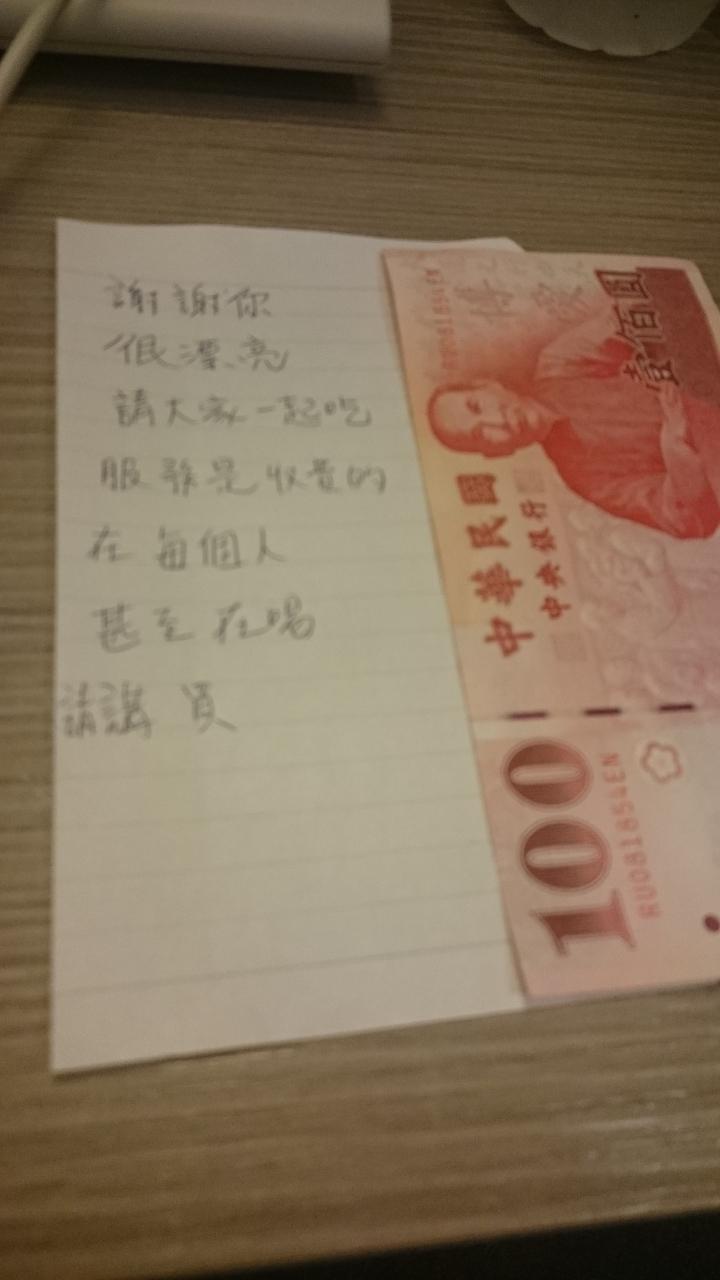 謝謝你
很漂亮
請大家一起吃
服務是收費的
在每個人
甚至在喝
請講 買
壹佰圓
中華民國
中央銀行
100
RU081854EN